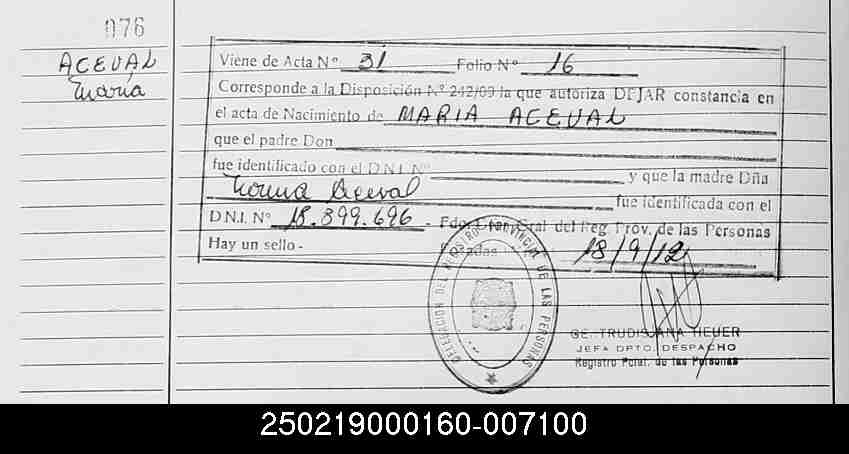 076
ACEVAL
María
Viene de Acta Nº 31 Folio Nº 16
Corresponde a la Disposición Nº 242/09 la que autoriza DEJAR constancia en
el acta de Nacimiento de MARIA ACEVAL
que el padre Don
fue identificado con el D.N.I. Nº y que la madre Dña
Norma Aceval fue identificada con el
D.N.I. Nº 18.399.696 - Fdo. Gral del Reg. Prov. de las Personas
Hay un sello - 18/9/12
DELEGACION DEL REGISTRO PROVINCIAL DE LAS PERSONAS
GERTRUDIS ANA HEUER
JEFA DPTO. DESPACHO
Registro Pcial. de las Personas
250219000160-007100